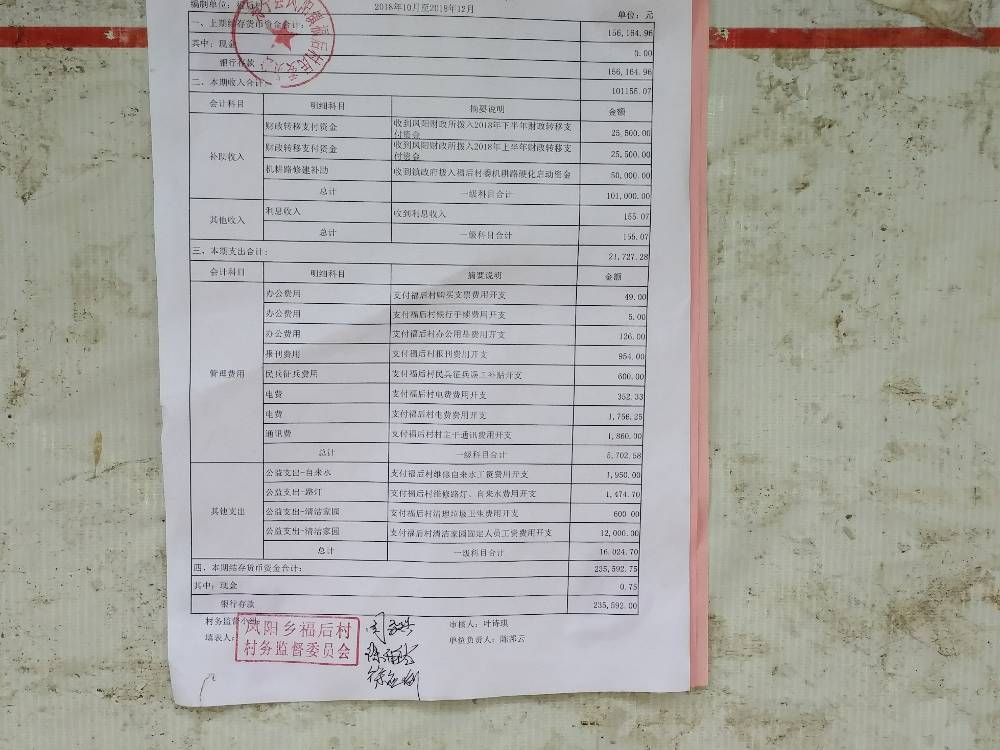 编制单位：福后村 2018年10月至2018年12月 单位：元
一、上期结存货币资金合计： 156,164.96
其中：现金 0.00
银行存款 156,164.96
二、本期收入合计： 101155.07
会计科目 明细科目 摘要说明 金额
补助收入
财政转移支付资金 收到凤阳财政所拨入2018年下半年财政转移支付资金 25,500.00
财政转移支付资金 收到凤阳财政所拨入2018年上半年财政转移支付资金 25,500.00
机耕路修建补助 收到镇政府拨入福后村委机耕路硬化启动资金 50,000.00
总计 一级科目合计 101,000.00
其他收入
利息收入 收到利息收入 155.07
总计 一级科目合计 155.07
三、本期支出合计： 21,727.28
会计科目 明细科目 摘要说明 金额
管理费用
办公费用 支付福后村购买支票费用开支 49.00
办公费用 支付福后村银行手续费用开支 5.00
办公费用 支付福后村办公用品费用开支 126.00
报刊费用 支付福后村报刊费用开支 954.00
民兵征兵费用 支付福后村民兵征兵误工补贴开支 600.00
电费 支付福后村电费费用开支 352.33
电费 支付福后村电费费用开支 1,756.25
通讯费 支付福后村村主干通讯费用开支 1,860.00
总计 一级科目合计 5,702.58
其他支出
公益支出-自来水 支付福后村维修自来水工资费用开支 1,950.00
公益支出-路灯 支付福后村维修路灯、自来水费用开支 1,474.70
公益支出-清洁家园 支付福后村清理垃圾卫生费用开支 600.00
公益支出-清洁家园 支付福后村清洁家园固定人员工资费用开支 12,000.00
总计 一级科目合计 16,024.70
四、本期结存货币资金合计： 235,592.75
其中：现金 0.75
银行存款 235,592.00
村务监督小组： 审核人：叶诗琪
填表人： 单位负责人：陈邦云
凤阳乡福后村
村务监督委员会